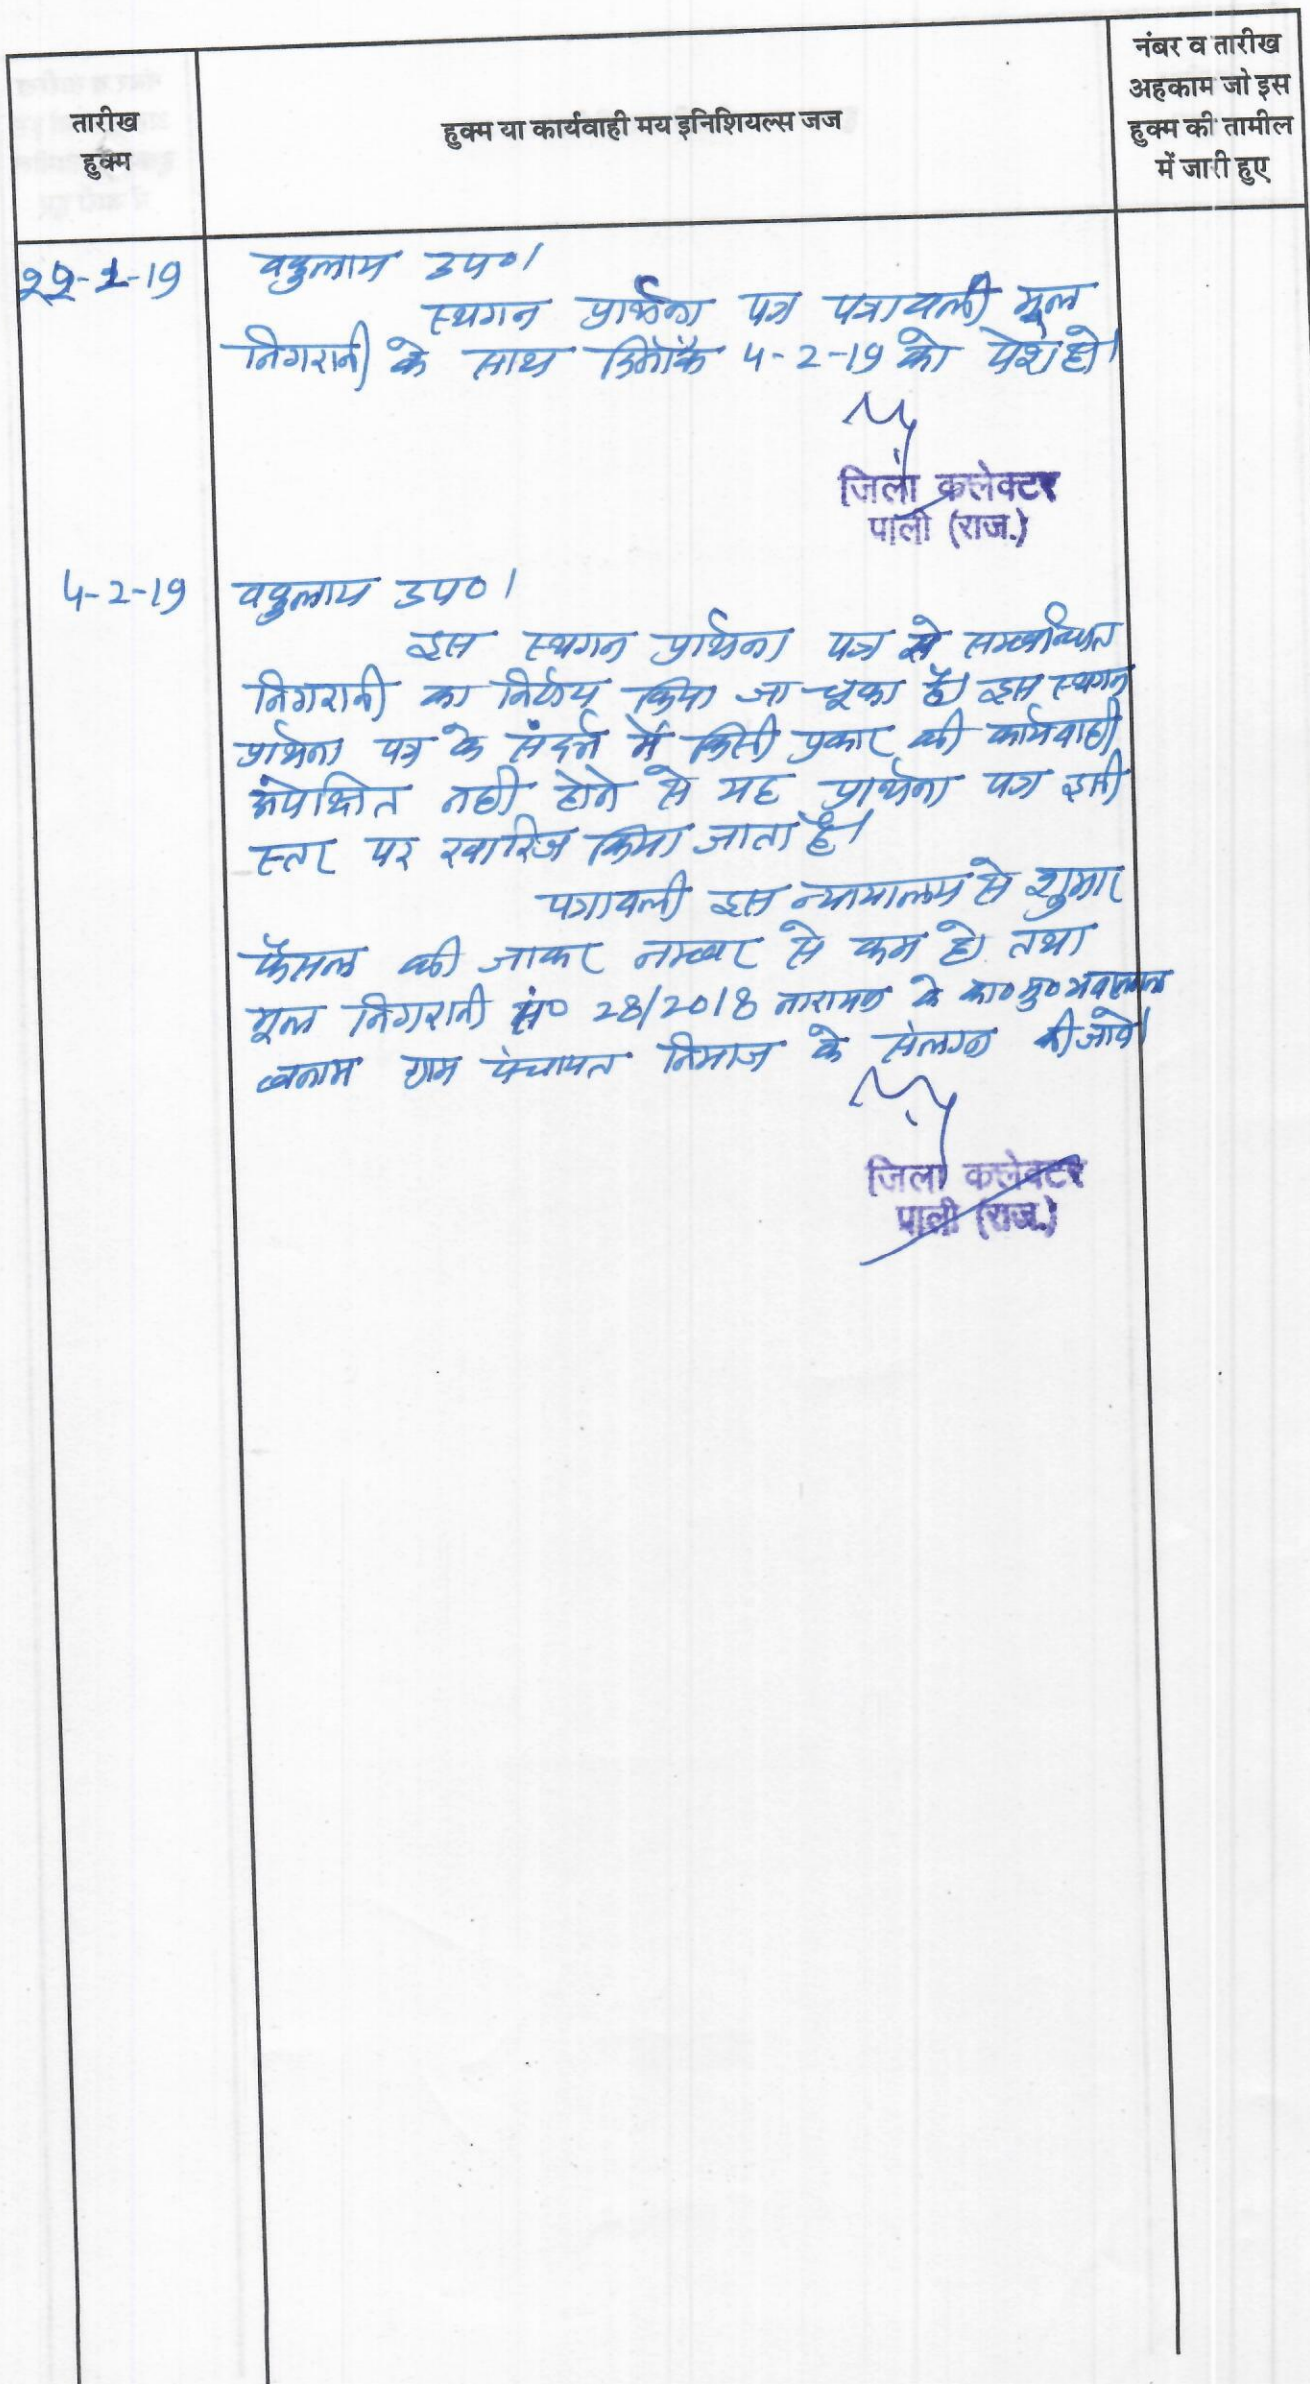 तारीख
हुक्म
हुक्म या कार्यवाही मय इनिशियल्स जज
नंबर व तारीख
अहकाम जो इस
हुक्म की तामील
में जारी हुए
-1-19 वकुलाय उप०।
स्थगन प्रार्थना पत्र पत्रावली मूल
निगरानी के साथ दिनांक 4-2-19 को पेश हो।
जिला कलेक्टर
पाली (राज.)
4-2-19 वकुलाय उप०।
इस स्थगन प्रार्थना पत्र से सम्बन्धित
निगरानी का निर्णय किया जा चूका है। इस स्थगन
प्रार्थना पत्र के संदर्भ में किसी प्रकार की कार्यवाही
अपेक्षित नही होने से यह प्रार्थना पत्र इसी
स्तर पर खारिज किया जाता है।
पत्रावली इस न्यायालय से शुमार
फैसल की जाकर नम्बर से कम हो तथा
मूल निगरानी सं० 28/2018 नारायण के का० मु०
बनाम ग्राम पंचायत निमाज के संलग्न की जावे।
जिला कलेक्टर
पाली (राज.)